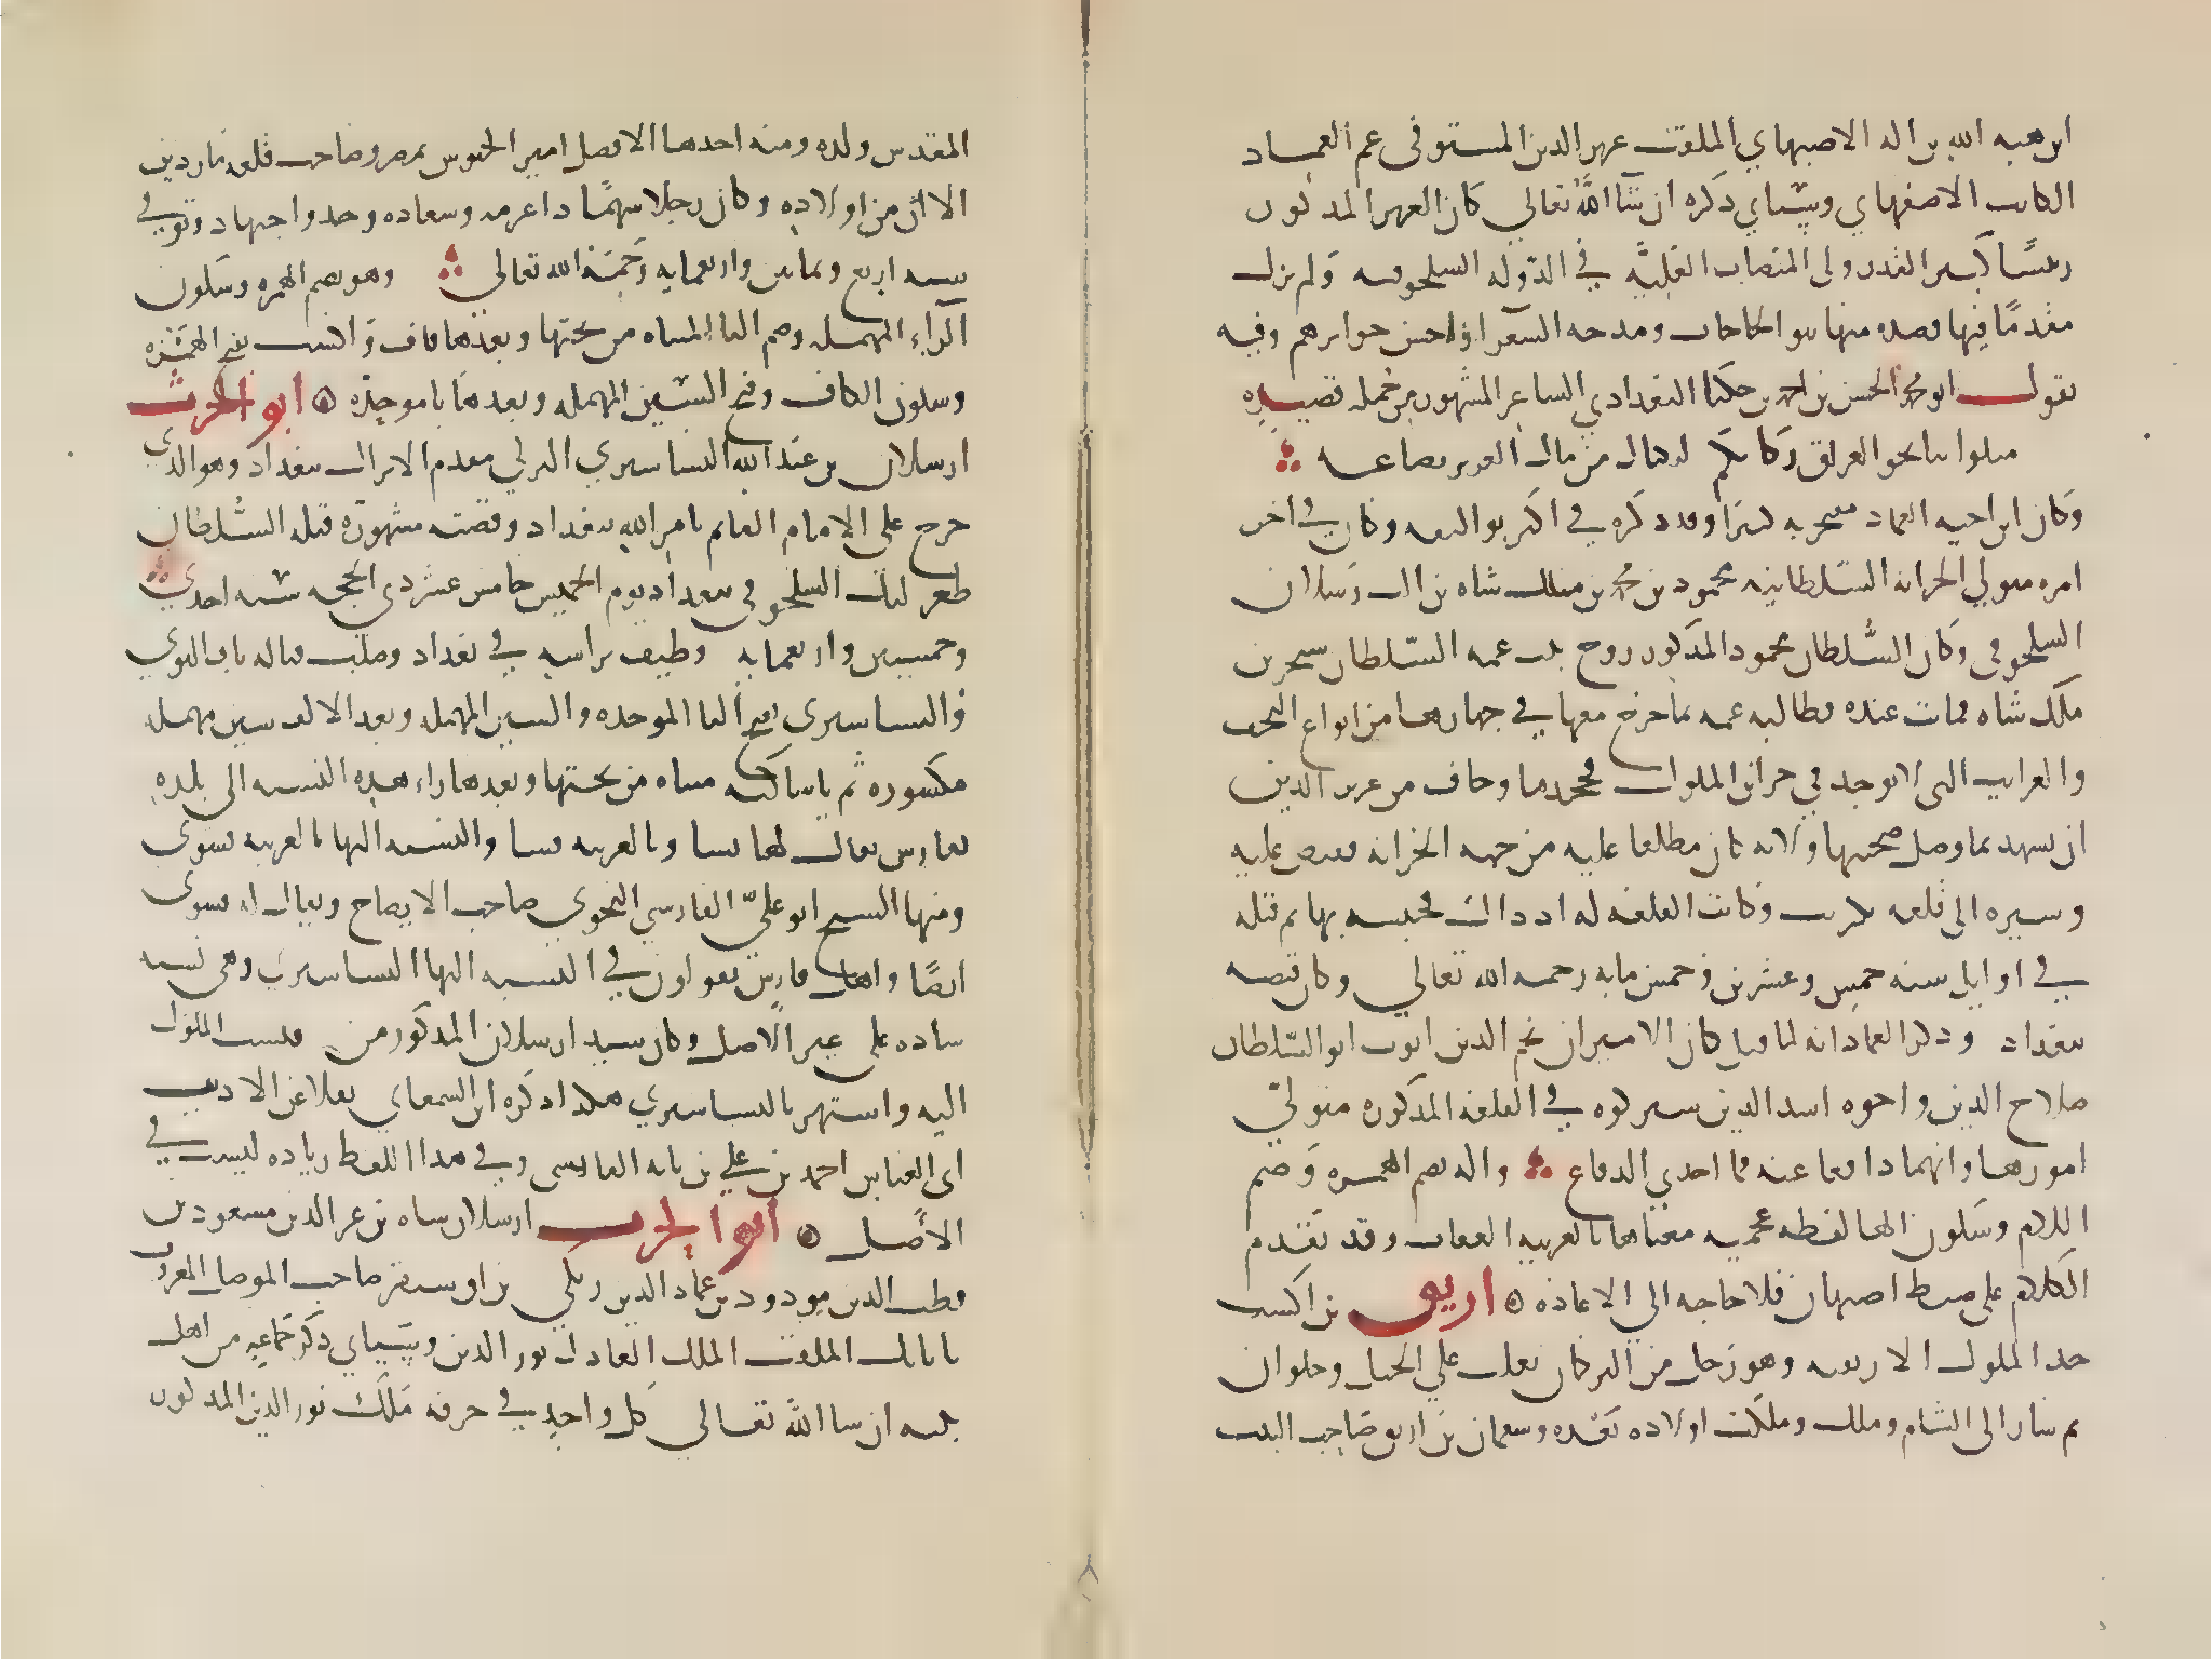 ابن هبه الله بن اله الاصبهاني الملقب عزيز الدين المستوفى عم العماد
الكاتب الاصفهاني وسياتي ذكره ان شا الله تعالي كان العزيز المذكور
رئيسًا كبير القدر ولى المناصب العلية في الدوله السلجوقيه ولم يزل
مقدمًا فيها قصده منها بنو الحاجات ومدحه الشعرا واحسن جوايزهم وفيه
يقول ابو محمد الحسن بن احمد بن حكينا البغدادي الشاعر المشهور من جمله قصيده
ميلوا بنا نحو العراق ركابكم لنكتال من مال العزيز بصاعه
وكان ابن اخيه العماد يفتخر به كثيرا وقد ذكره في اكثر تواليفه وكان في اخر
امره متولي الخزانه السلطانيه محمود بن محمد بن ملك شاه بن الب رسلان
السلجوقي وكان السلطان محمود المذكور زوج بنت عمه السلطان سنجر بن
ملك شاه فماتت عنده فطالبه عمه بما خرج معها في جهازها من انواع التحف
والغرايب التي لا توجد في خزاين الملوك فجحدها وخاف من عزيز الدين
ان يشهد بما وصل صحبتها ولانه كان مطلعا عليه من جهه الخزانه فقبض عليه
وسيره الى قلعه تكريت وكانت القلعه له اذ ذاك فحبسه بها ثم قتله
في اوايل سنه خمس وعشرين وخمس مايه رحمه الله تعالي وكان قبضه
ببغداد وذكر العماد انه لما قتل كان الاميران نجم الدين ايوب ابو السلطان
صلاح الدين واخوه اسد الدين شيركوه في القلعه المذكوره متولي
امورها وانهما دافعا عنه فما اجدي الدفاع واله بضم الهمزه وضم
اللام وسكون الها لفظه عجميه معناها بالعربيه العقاب وقد تقدم
الكلام على ضبط اصبهان فلا حاجه الى الاعاده ارتق بن اكسب
جد الملوك الارتقيه وهو رجل من التركمان تغلب علي الجبل وحلوان
ثم سار الى الشام وملك وملكت اولاده بعده وسقمان بن ارتق صاحب البيت
المقدس ولده ومنه اخدها الافضل امير الجيوش بمصر وصاحب قلعه ماردين
الا ان من اولاده وكان رجلا شهمًا ذا عزمه وسعاده وجد واجتهاد وتوفي
سنه اربع وثمانين واربعمايه رحمه الله تعالي وهو بضم الهمزه وسكون
الراء المهمله وضم التا المثناه من تحتها وبعدها قاف واكسب بفتح الهمزه
وسكون الكاف وفتح السين المهمله وبعدها با موحده ابو الحرث
ارسلان بن عبد الله البساسيري التركي مقدم الاتراك ببغداد وهو الذي
خرج علي الامام القايم بامر الله ببغداد وقصته مشهورة قتله السلطان
طغرلبك السلجوقي ببغداد يوم الخميس خامس عشر ذي الحجه سنه احدي
وخمسين واربعمايه وطيف براسه في بغداد وصلب قباله باب النوبي
والبساسيرى بفتح البا الموحده والسين المهمله وبعد الالف سين مهمله
مكسوره ثم يا ساكنه مثناه من تحتها وبعدها راء هذه النسبه الى بلده
بفارس يقال لها بسا وبالعربيه فسا والنسبه اليها بالعربيه فسوى
ومنها الشيخ ابو علي الفارسي النحوي صاحب الايضاح ويقال له فسوى
ايضًا واهل فارس يقولون في النسبه اليها البساسيري وهى نسبه
شاذه على غير الاصل وكان سيد ارسلان المذكور من فنسب المملوك
اليه واشتهر بالبساسيري هكذا ذكره ابن السمعاني نقلا عن الاديب
ابى العباس احمد بن علي بن بابه القابسى وفي هذا اللفظ زياده ليست في
الاصل ابو الحرث ارسلان شاه بن عز الدين مسعود بن
قطب الدين مودود بن عماد الدين زنكي بن اق سنقر صاحب الموصل المعروف
باتابك الملقب الملك العادل نور الدين وسياتي ذكر جماعه من اهل
بيته ان شا الله تعالي كل واحد في حرفه ملك نور الدين المذكور